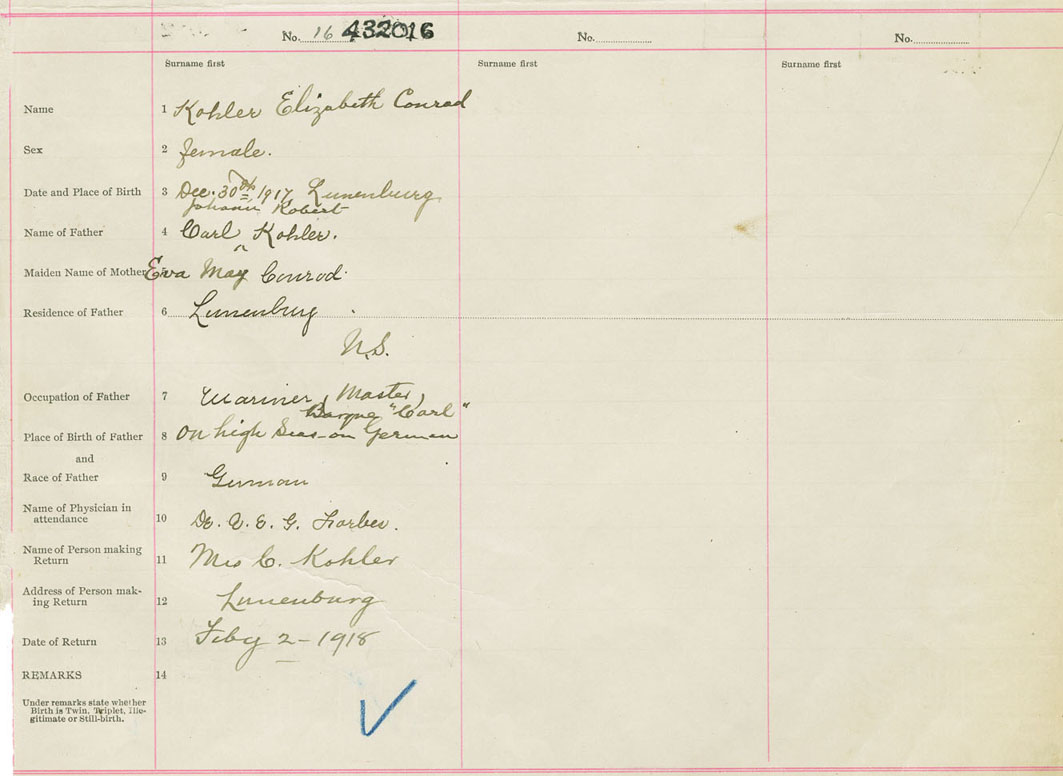 No. 16 432016
No.
No.
Surname first
Surname first
Surname first
Name 1 Kohler Elizabeth Conrad
Sex 2 female.
Date and Place of Birth 3 Dec. 30th 1917, Lunenburg
Johann Robert
Name of Father 4 Carl ^ Kohler.
Maiden Name of Mother Eva May Conrod
Residence of Father 6 Lunenburg
N.S.
Occupation of Father 7 Mariner, Master,
Barque "Carl"
Place of Birth of Father 8 On high Seas - on German
and
Race of Father 9 German
Name of Physician in
attendance 10 Dr. A. E. G. Forbes.
Name of Person making
Return 11 Mrs C. Kohler
Address of Person mak-
ing Return 12 Lunenburg
Date of Return 13 Feby 2 - 1918
REMARKS 14
Under remarks state whether
Birth is Twin, Triplet, Ille-
gitimate or Still-birth.